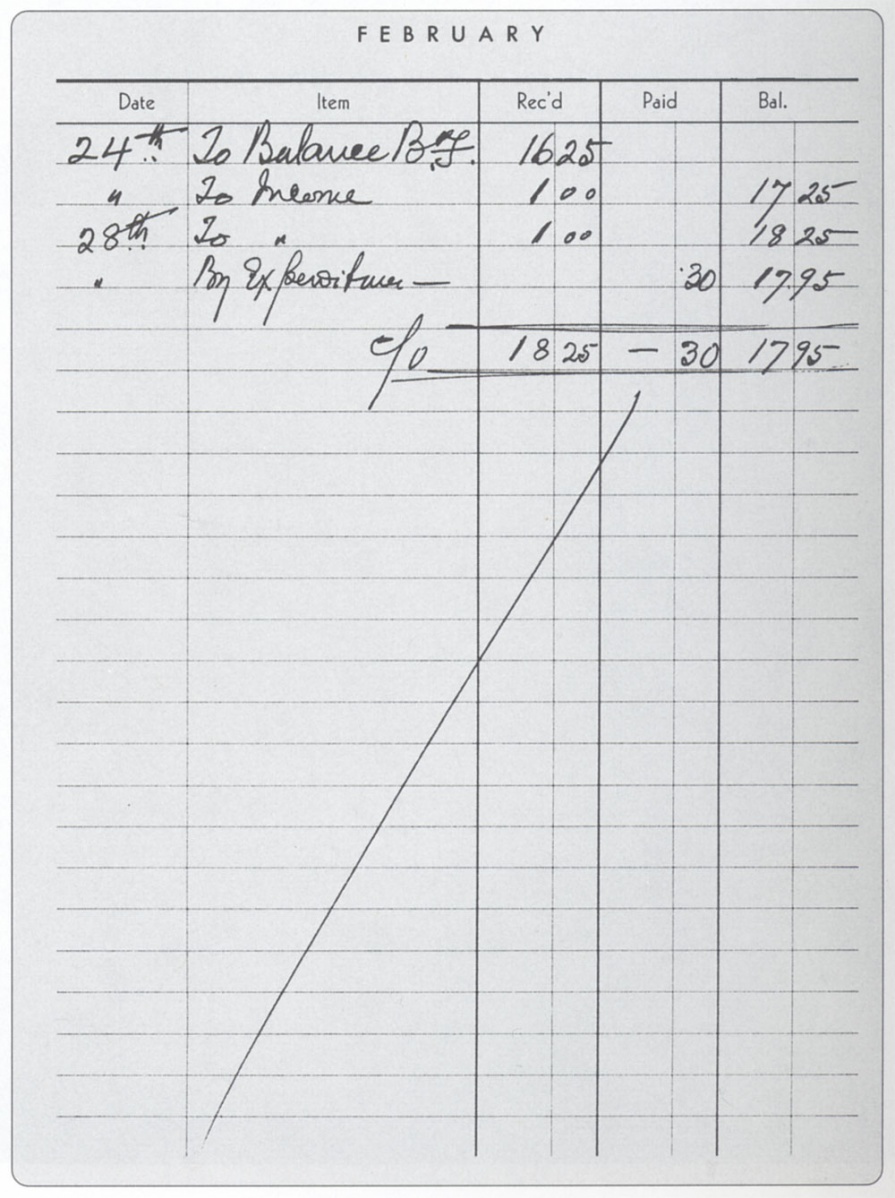 FEBRUARY
Date Item Rec'd Paid Bal.
24th To Balance B/F. 16 25
" To Income 1 00 17 25
28th To " 1 00 18 25
" By Expenditure — .30 17.95
c/o 18 25 — 30 17 95